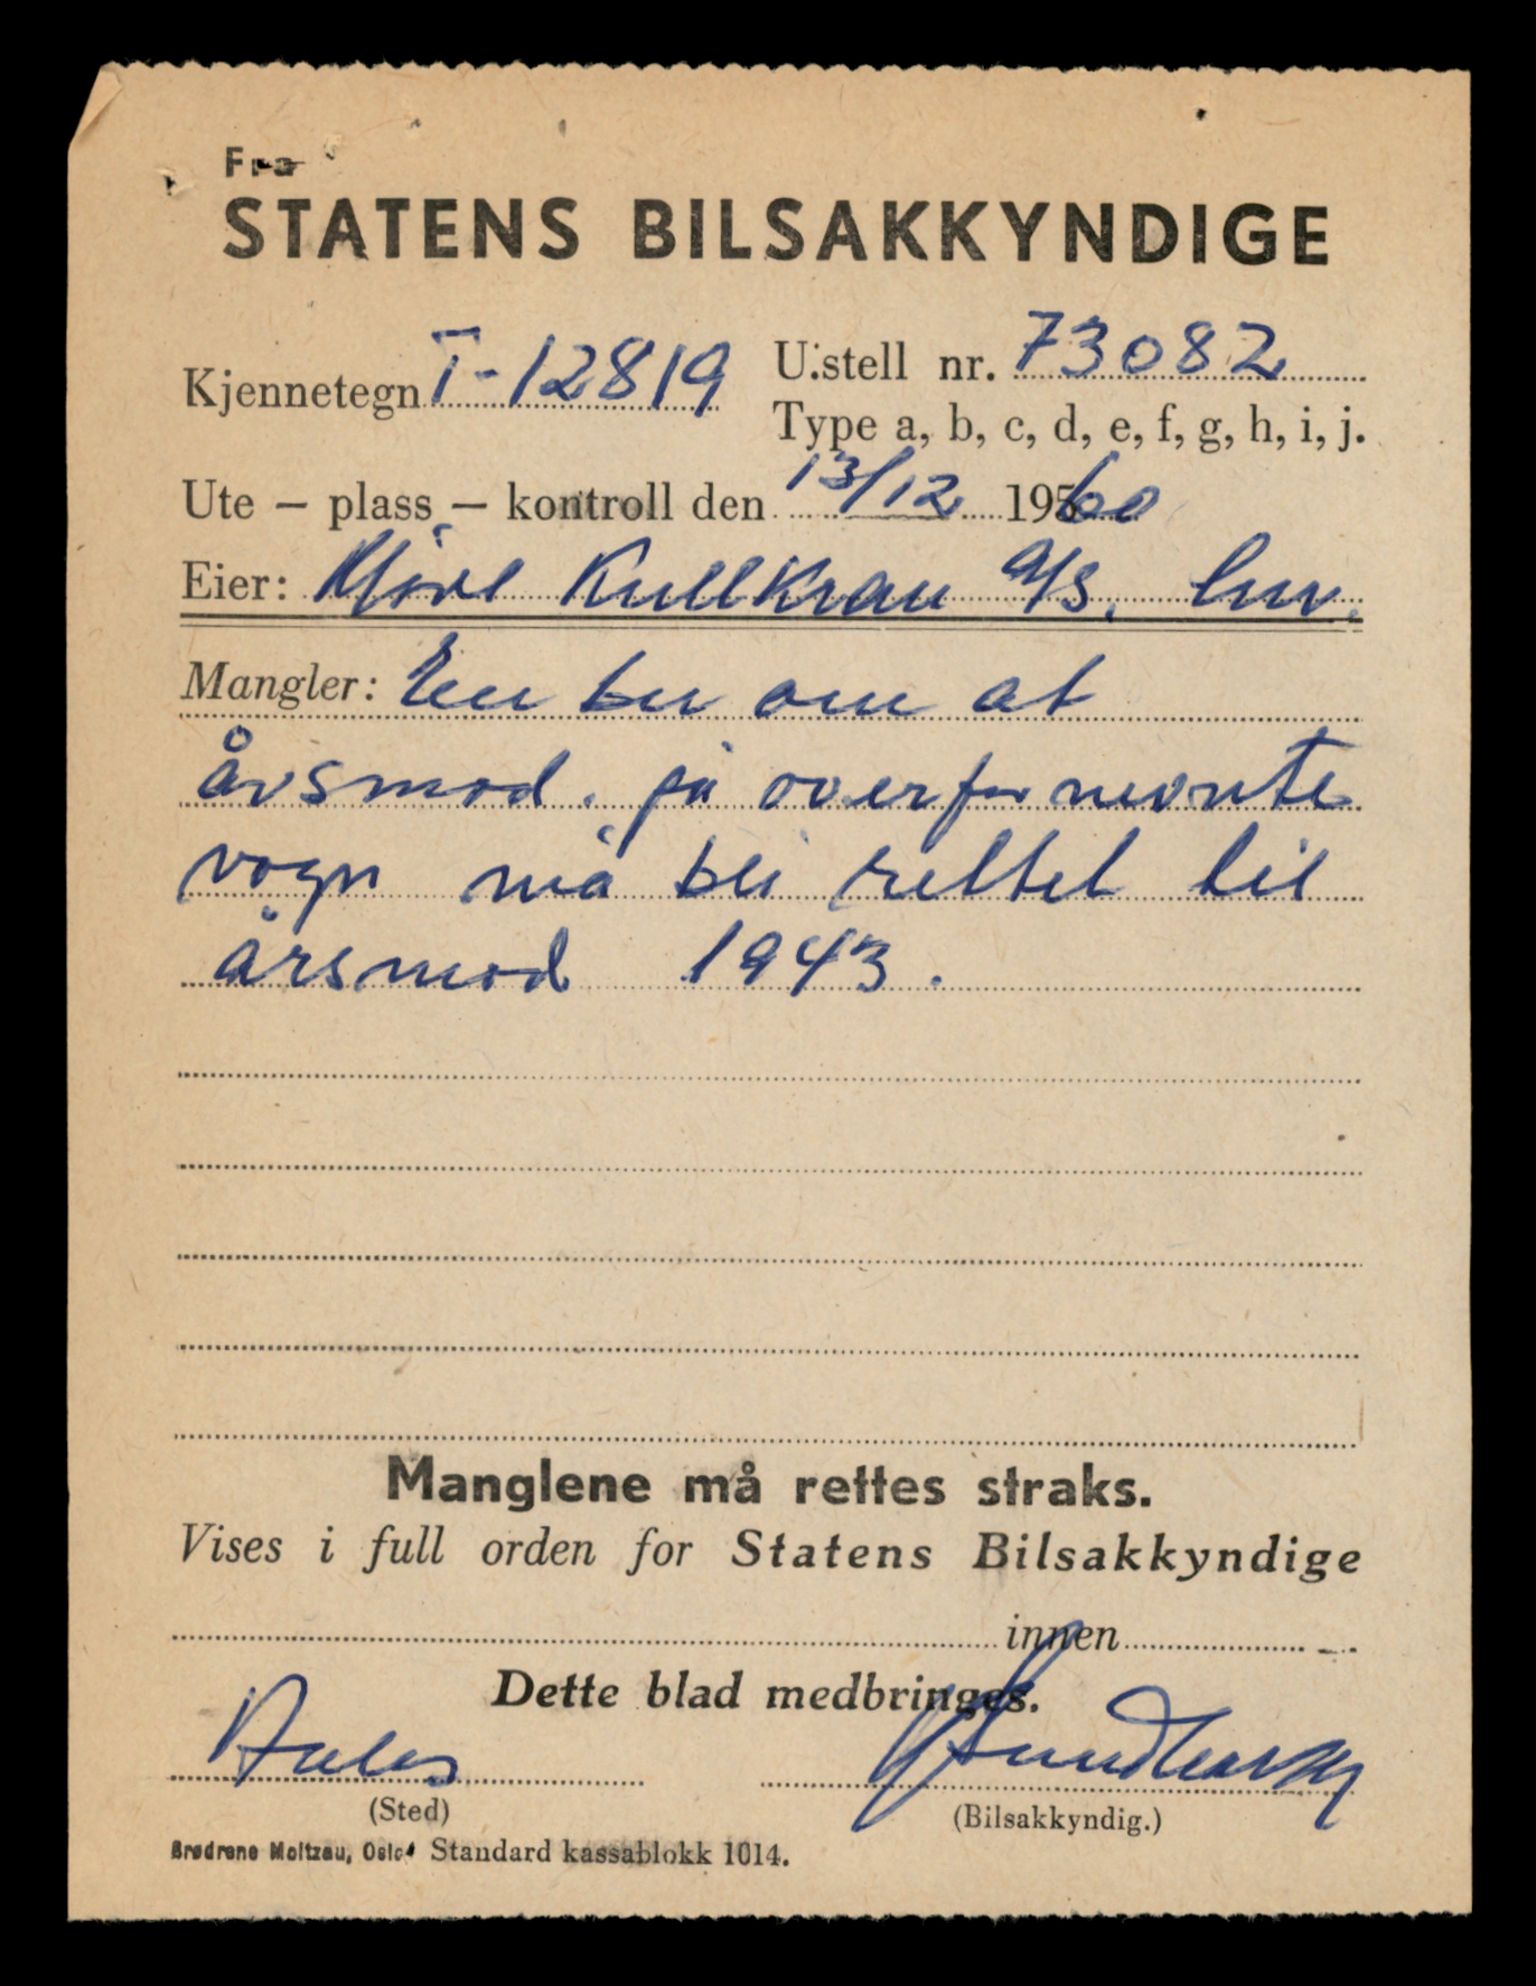 Fra
STATENS BILSAKKYNDIGE
Kjennetegn T-12819 U.stell nr. 73082
Type a, b, c, d, e, f, g, h, i, j.
Ute – plass – kontroll den 13/12 1960
Eier: Kullkran A/S.
Mangler: En ber om at
årsmod. på overfor nevnte
vogn må bli rettet til
årsmod 1943.
Manglene må rettes straks.
Vises i full orden for Statens Bilsakkyndige
innen
Dette blad medbringes.
(Sted)
(Bilsakkyndig.)
Brødrene Moltzau, Oslo. Standard kassablokk 1014.